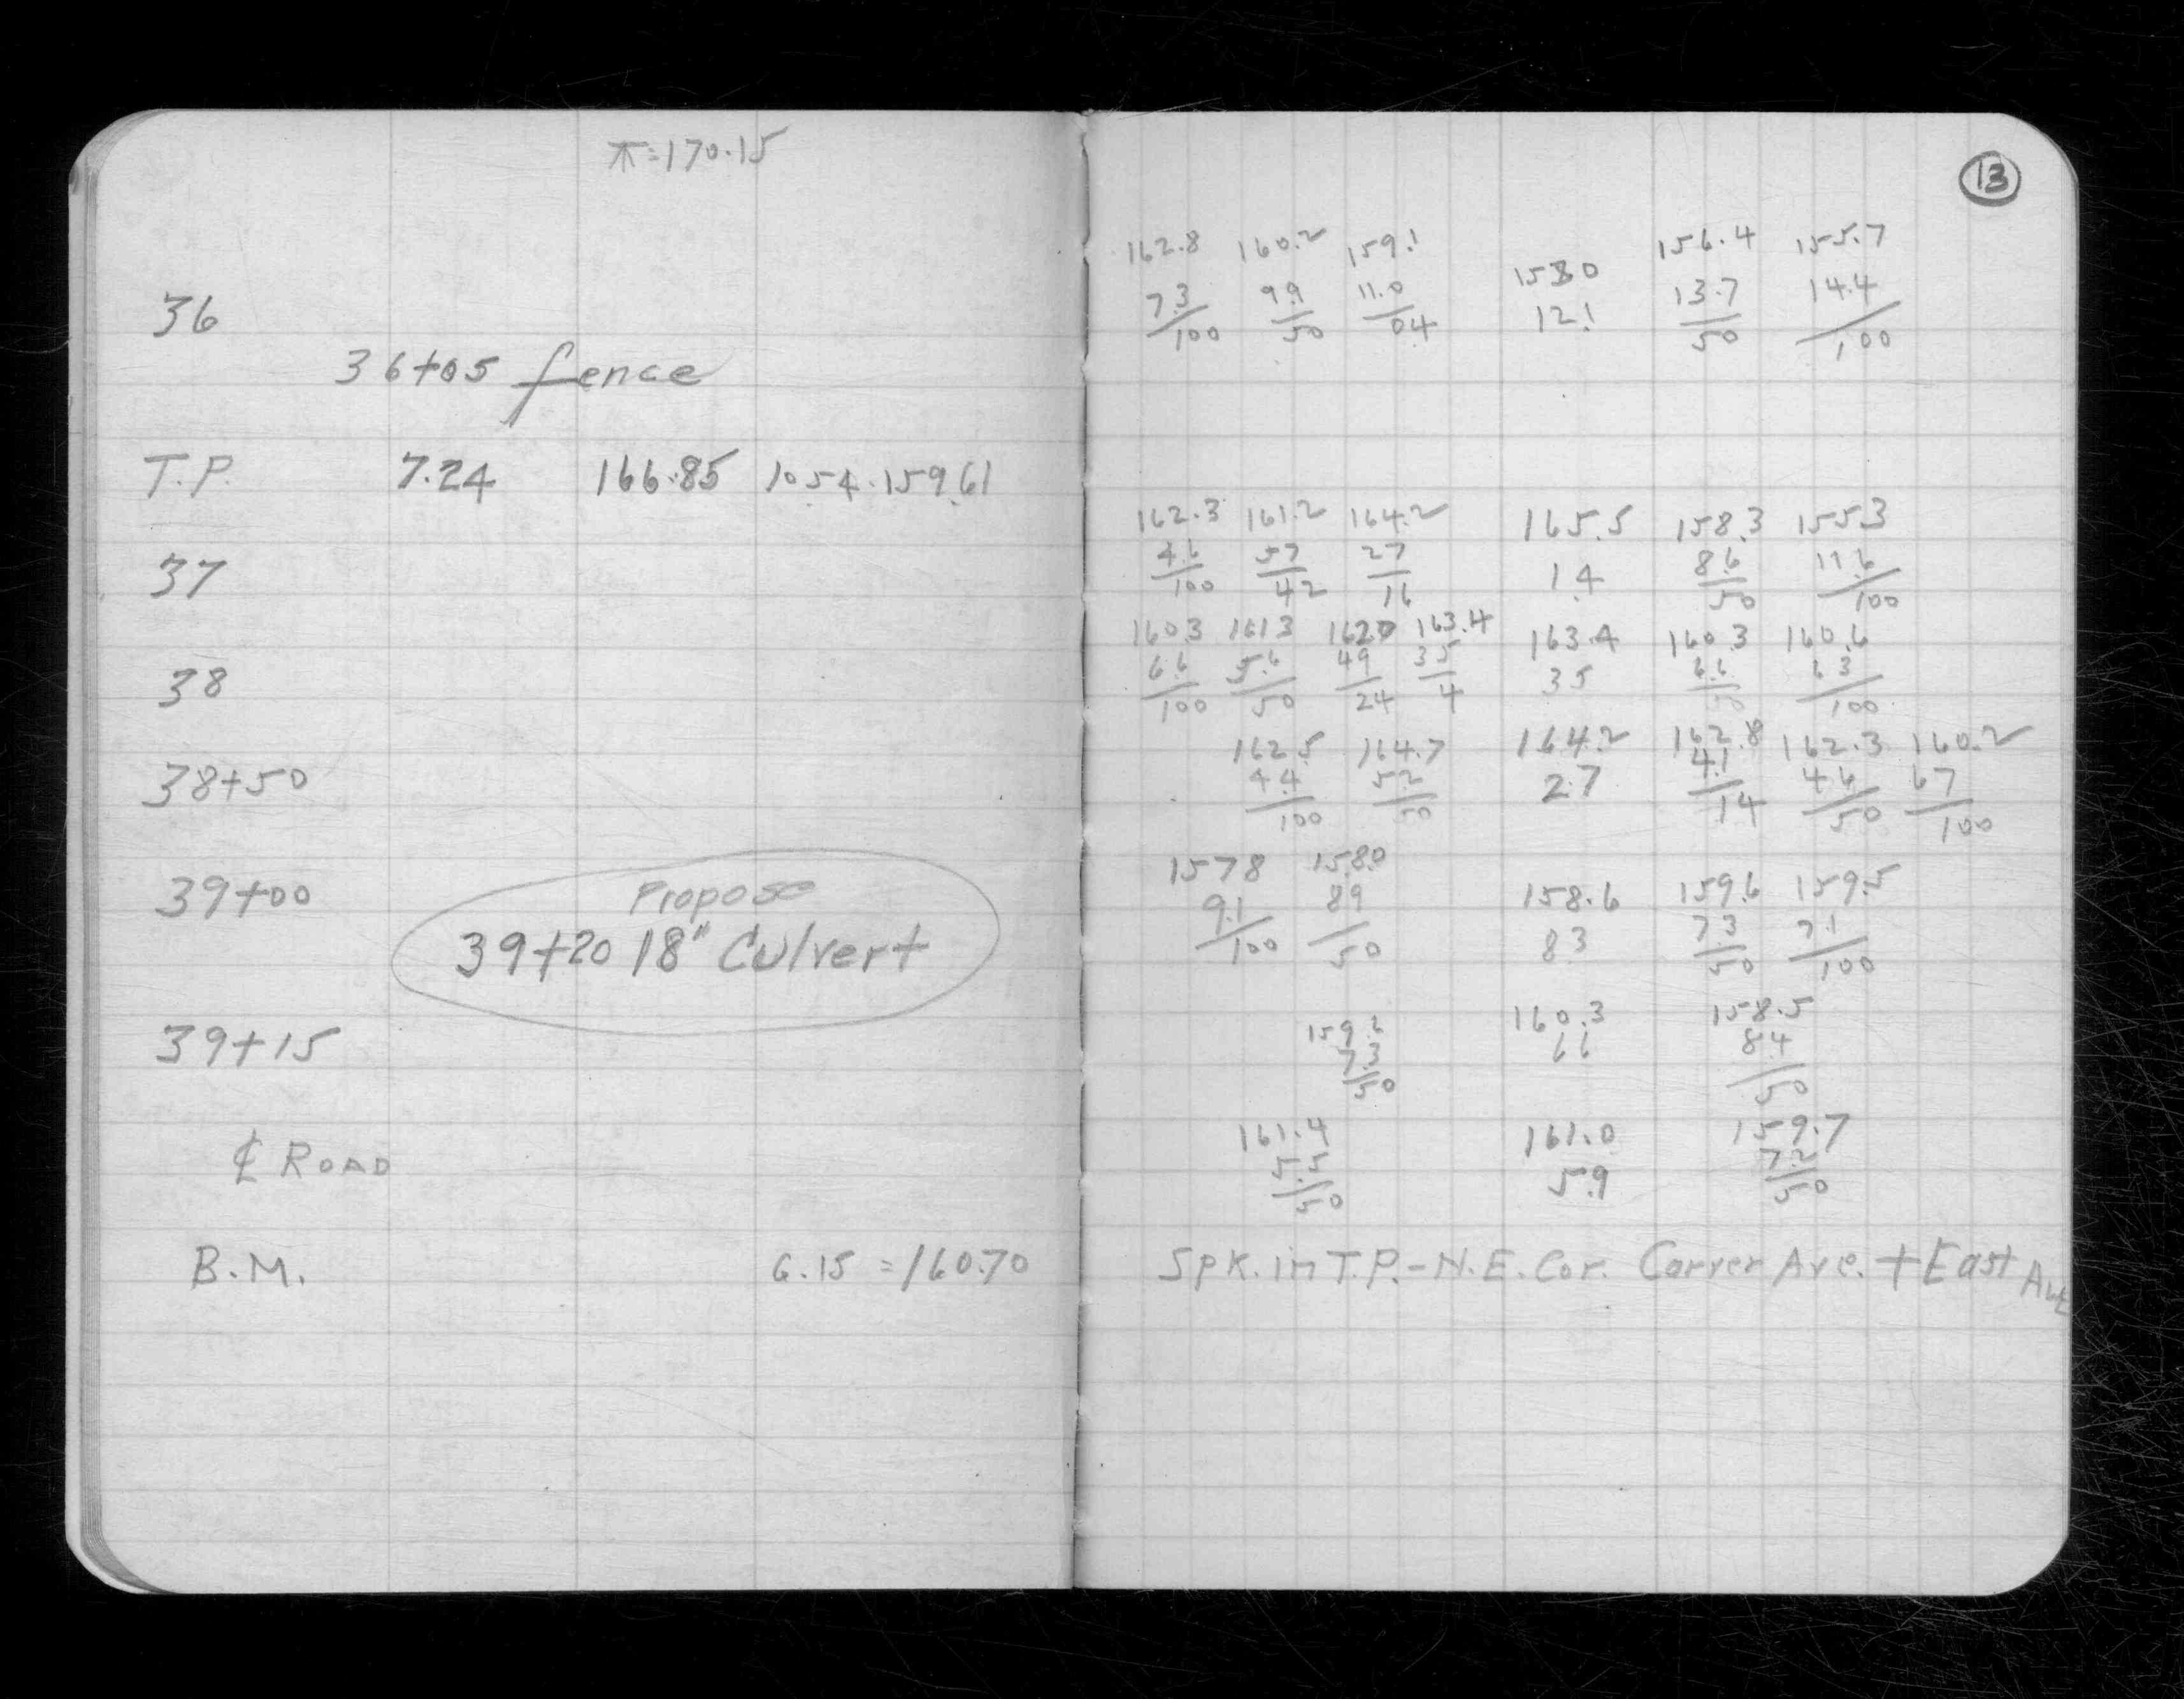 ⊼=170.15
36
36+05 fence
T.P. 7.24 166.85 10.54 159.61
37
38
38+50
39+00
Propose
39+20 18" Culvert
39+15
℄ ROAD
B.M. 6.15 = 160.70
13
162.8 160.2 159.1 158.0 156.4 155.7
7.3/100 9.9/50 11.0/04 12.1 13.7/50 14.4/100
162.3 161.2 164.2 165.5 158.3 155.3
4.6/100 5.7/42 2.7/16 1.4 8.6/50 11.6/100
160.3 161.3 162.0 163.4 163.4 160.3 160.6
6.6/100 5.6/50 4.9/24 3.5/4 3.5 6.6/50 6.3/100
162.5 164.7 164.2 162.8 162.3 160.2
4.4/100 5.2/50 2.7 4.1/14 4.6/50 6.7/100
157.8 158.0 158.6 159.6 159.5
9.1/100 8.9/50 8.3 7.3/50 7.1/100
159.6 160.3 158.5
7.3/50 6.6 8.4/50
161.4 161.0 159.7
5.5/50 5.9 7.2/50
Spk. in T.P. - N.E. Cor. Carver Ave. + East Ave